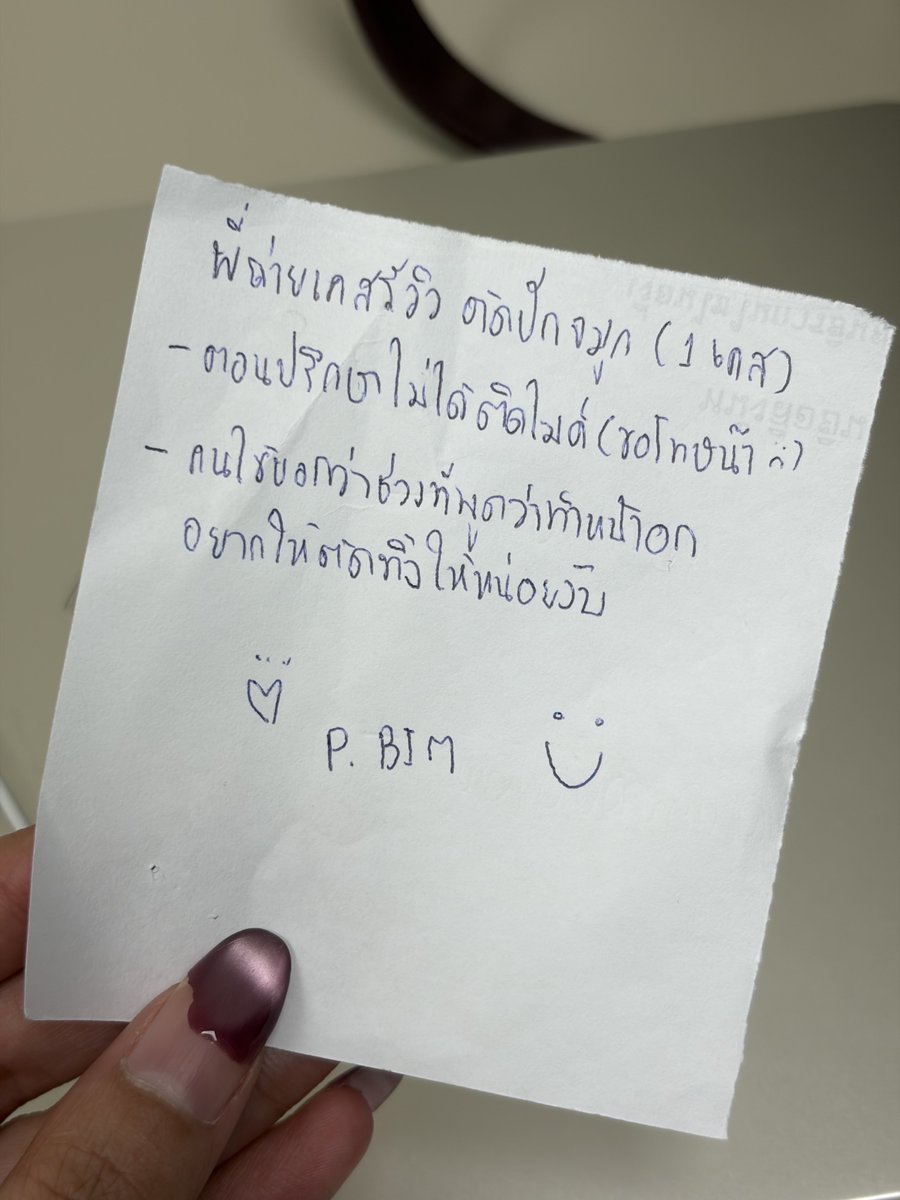 พี่ถ่ายเคสรีวิว ตัดปีกจมูก (1 เคส)
- ตอนปรึกษาไม่ได้ติดไมค์ (ขอโทษน้า :()
- คนไข้บอกว่าช่วงที่พูดว่าทำหน้าอก
อยากให้ตัดทิ้งให้หน่อยงับ
P. BIM